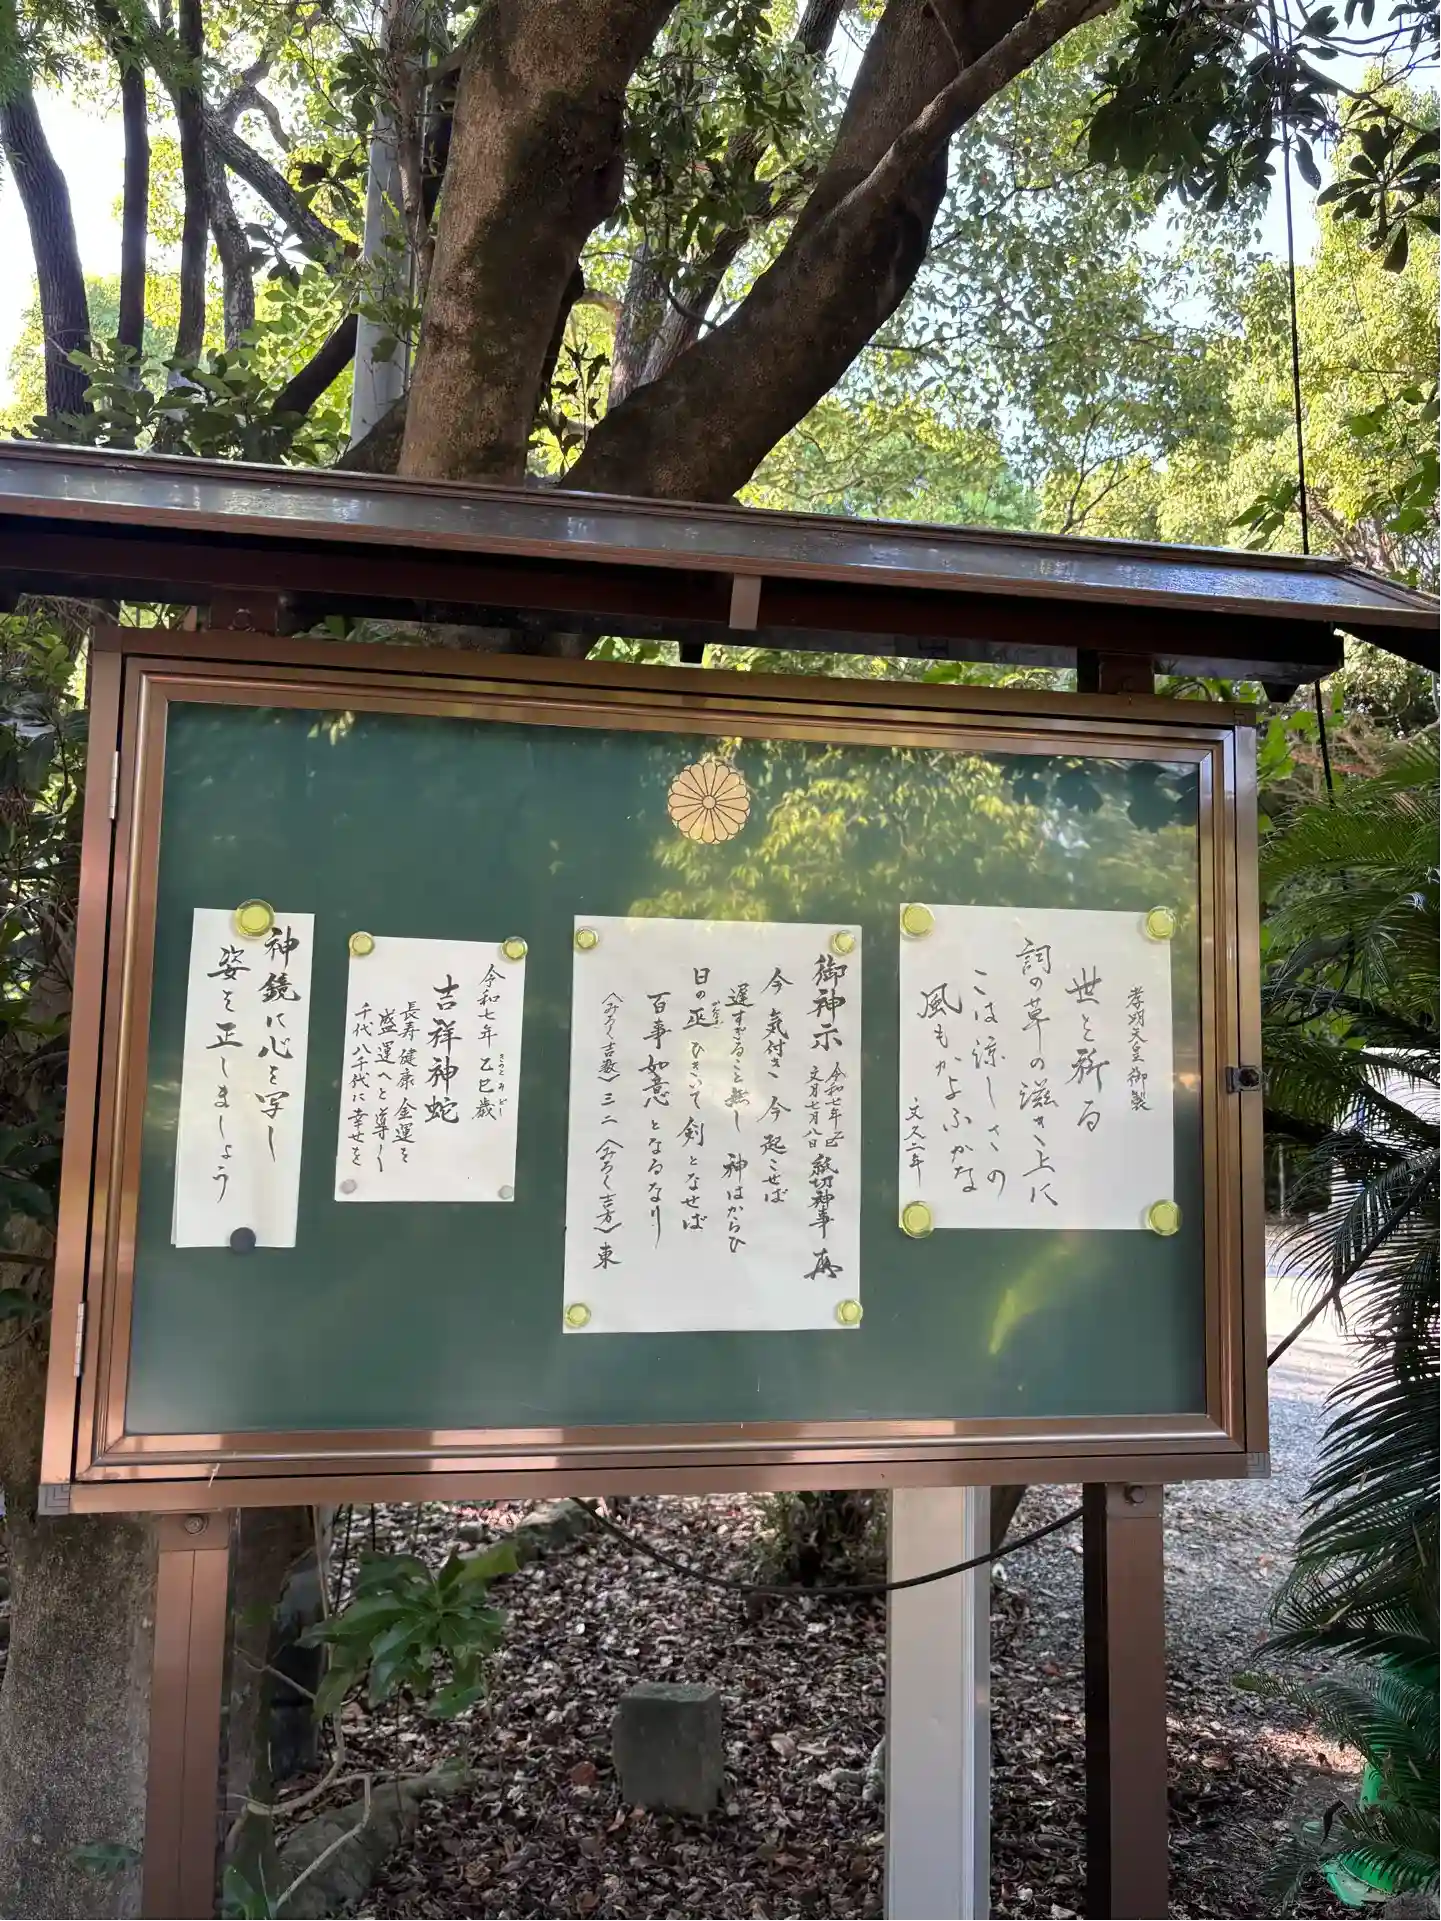 孝明天皇御製
世を祈る
詞の草の滋き上に
こは涼しさの
風もかよふかな
文久二年
御神示
令和七年乙巳
文月七月八日
紙切神事
今気付き 今起こせば
遅すぎること無し 神はからひ
日の巫ひきいて 剣となせば
かんなぎ
百事如意となるなり
〈みろく吉数〉三二 〈みろく吉方〉東
令和七年 乙巳歳
きのとみどし
吉祥神蛇
長寿健康金運を
盛運へと導く
千代八千代に幸せを
神鏡に心を写し
姿を正しましょう